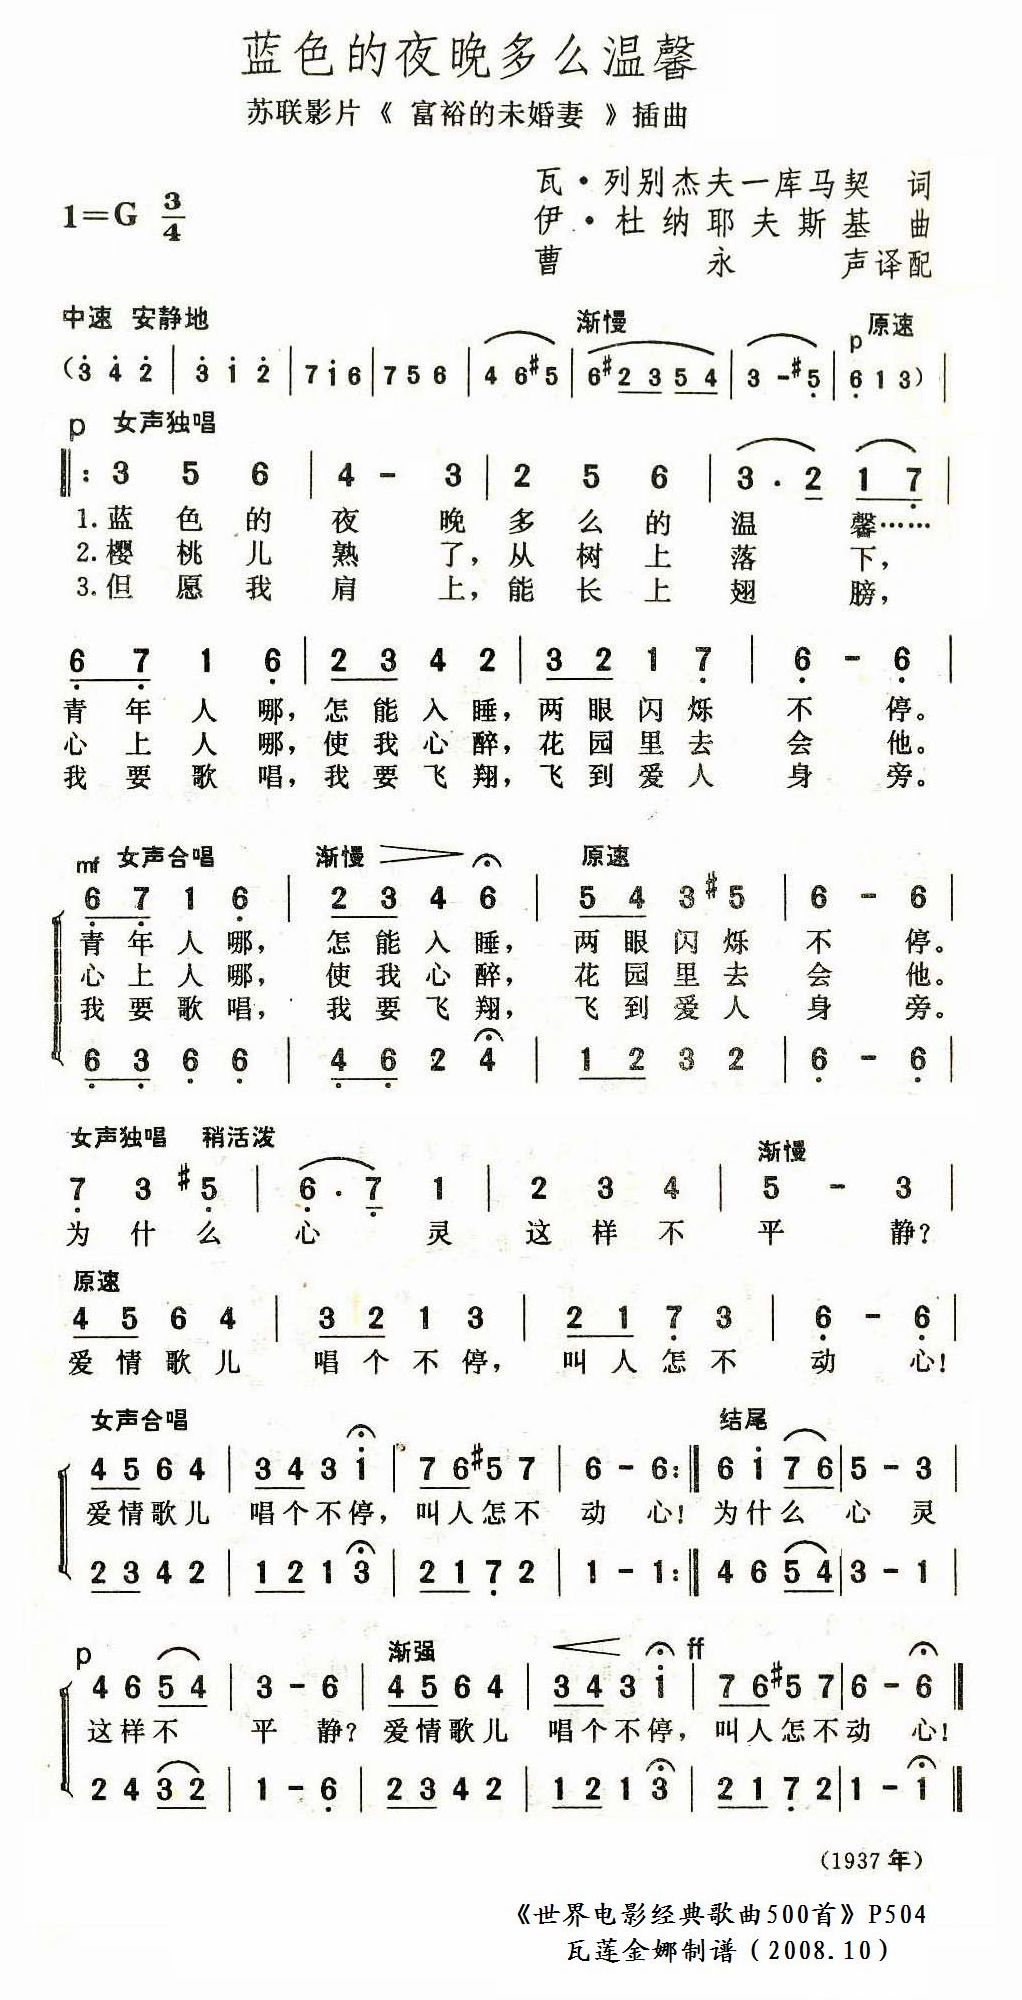 蓝色的夜晚多么温馨
苏联影片《 富裕的未婚妻 》插曲
瓦·列别杰夫—库马契 词
1=G 3/4
伊·杜纳耶夫斯基 曲
曹永声译配
中速 安静地 渐慢 p 原速
(3 4 2 | 3 i 2 | 7 i 6 | 7 5 6 | 4 6 #5 | 6 #2 3 5 4 | 3 - #5 | 6 1 3) |
p 女声独唱
‖: 3 5 6 | 4 - 3 | 2 5 6 | 3 · 2 1 7 |
1.蓝色的夜晚多么的温馨……
2.樱桃儿熟了，从树上落下，
3.但愿我肩上，能长上翅膀，
6 7 1 6 | 2 3 4 2 | 3 2 1 7 | 6 - 6 |
青年人哪，怎能入睡，两眼闪烁不停。
心上人哪，使我心醉，花园里去会他。
我要歌唱，我要飞翔，飞到爱人身旁。
mf 女声合唱 渐慢 原速
6 7 1 6 | 2 3 4 6 | 5 4 3 #5 | 6 - 6 |
青年人哪，怎能入睡，两眼闪烁不停。
心上人哪，使我心醉，花园里去会他。
我要歌唱，我要飞翔，飞到爱人身旁。
6 3 6 6 | 4 6 2 4 | 1 2 3 2 | 6 - 6 |
女声独唱 稍活泼 渐慢
7 3 #5 | 6 · 7 1 | 2 3 4 | 5 - 3 |
为什么心灵这样不平静？
原速
4 5 6 4 | 3 2 1 3 | 2 1 7 3 | 6 - 6 |
爱情歌儿唱个不停，叫人怎不动心！
女声合唱 结尾
4 5 6 4 | 3 4 3 i | 7 6 #5 7 | 6 - 6 :‖ 6 i 7 6 | 5 - 3 |
爱情歌儿唱个不停，叫人怎不动心！为什么心灵
2 3 4 2 | 1 2 1 3 | 2 1 7 2 | 1 - 1 :‖ 4 6 5 4 | 3 - 1 |
p 渐强 ff
4 6 5 4 | 3 - 6 | 4 5 6 4 | 3 4 3 i | 7 6 #5 7 | 6 - 6 ‖
这样不平静？爱情歌儿唱个不停，叫人怎不动心！
2 4 3 2 | 1 - 6 | 2 3 4 2 | 1 2 1 3 | 2 1 7 2 | 1 - 1 ‖
(1937 年)
《世界电影经典歌曲500首》P504
瓦莲金娜制谱（2008.10）